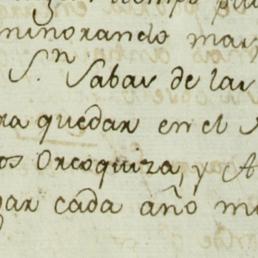 minorando mas
S.n Sabas de las
ra quedar en el
os Orcoquiza, y A
gar cada año m